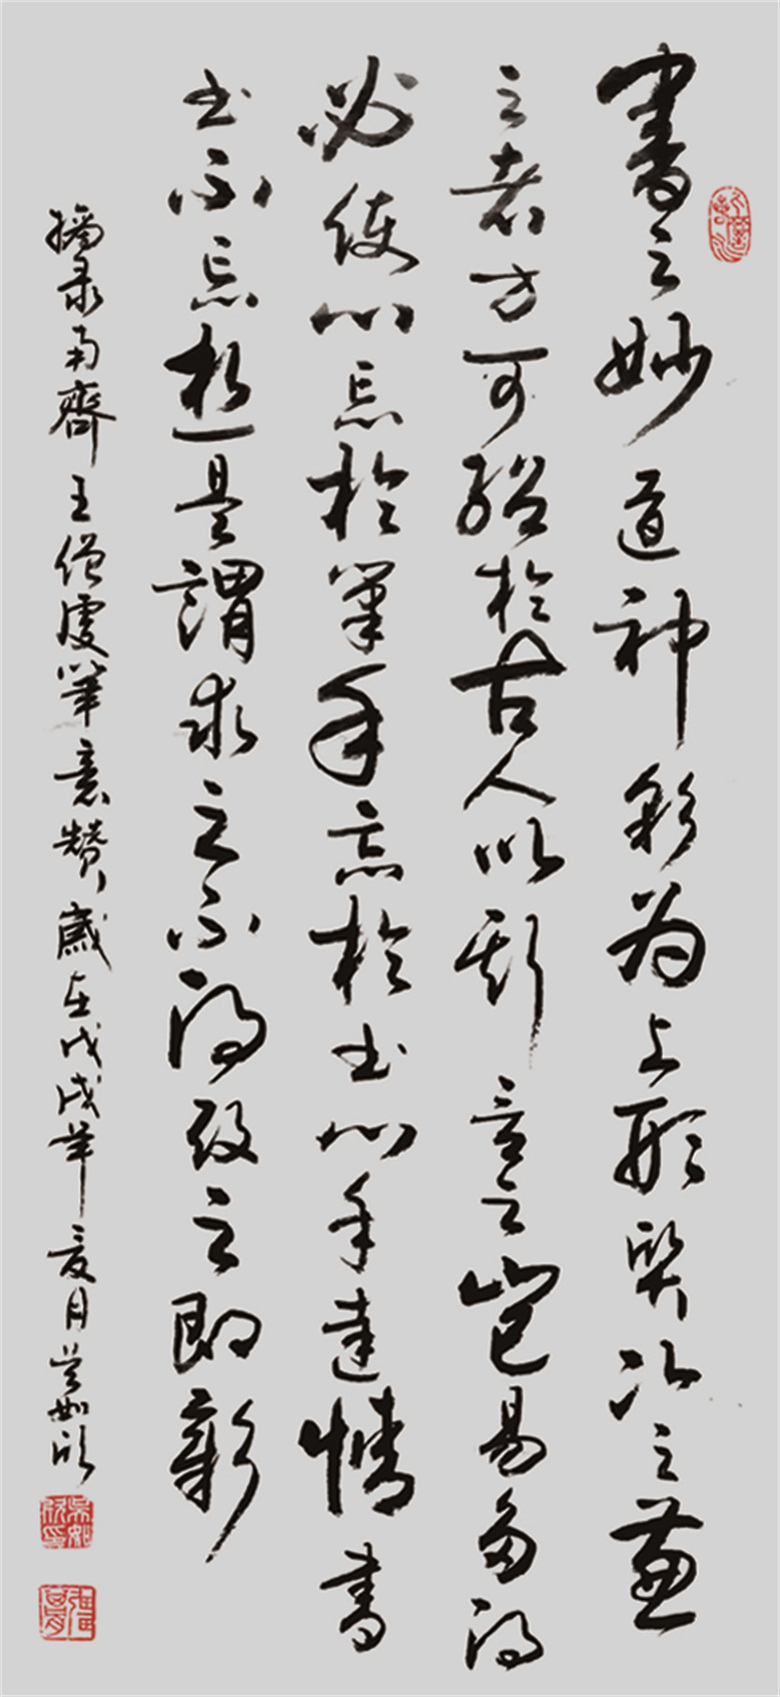 書之妙道神彩为上形質次之兼
之者方可紹於古人以斯言之豈易多得
必使心忘於筆手忘於书心手達情書
书不忘想是謂求之不得攷之即彰
摘录南齊王僧虔筆意贊歲在戊戌年夏月吴如欣